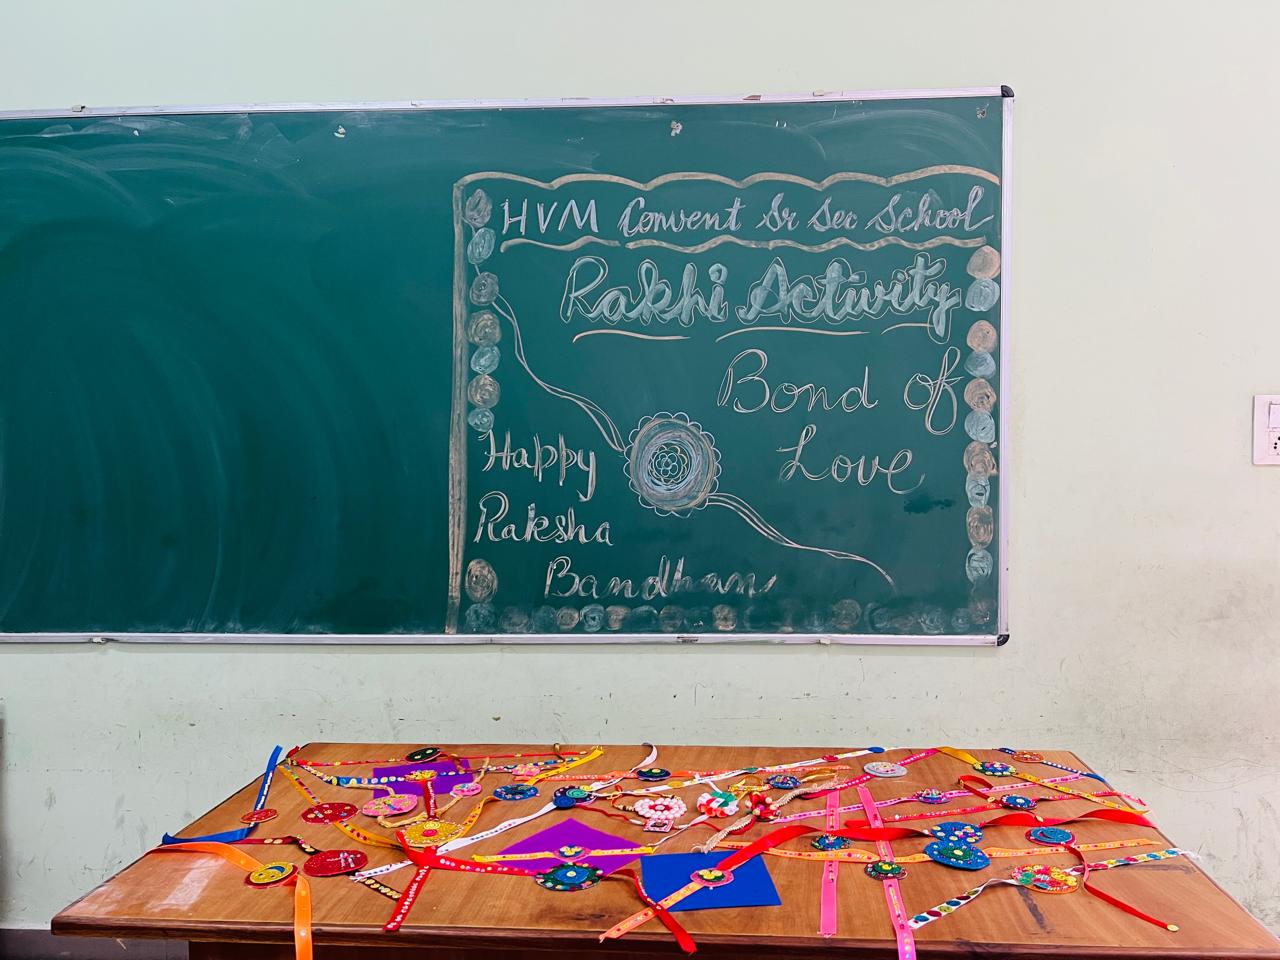 HVM Convent Sr Sec School
Rakhi Activity
Bond of
Love
Happy
Raksha
Bandhan